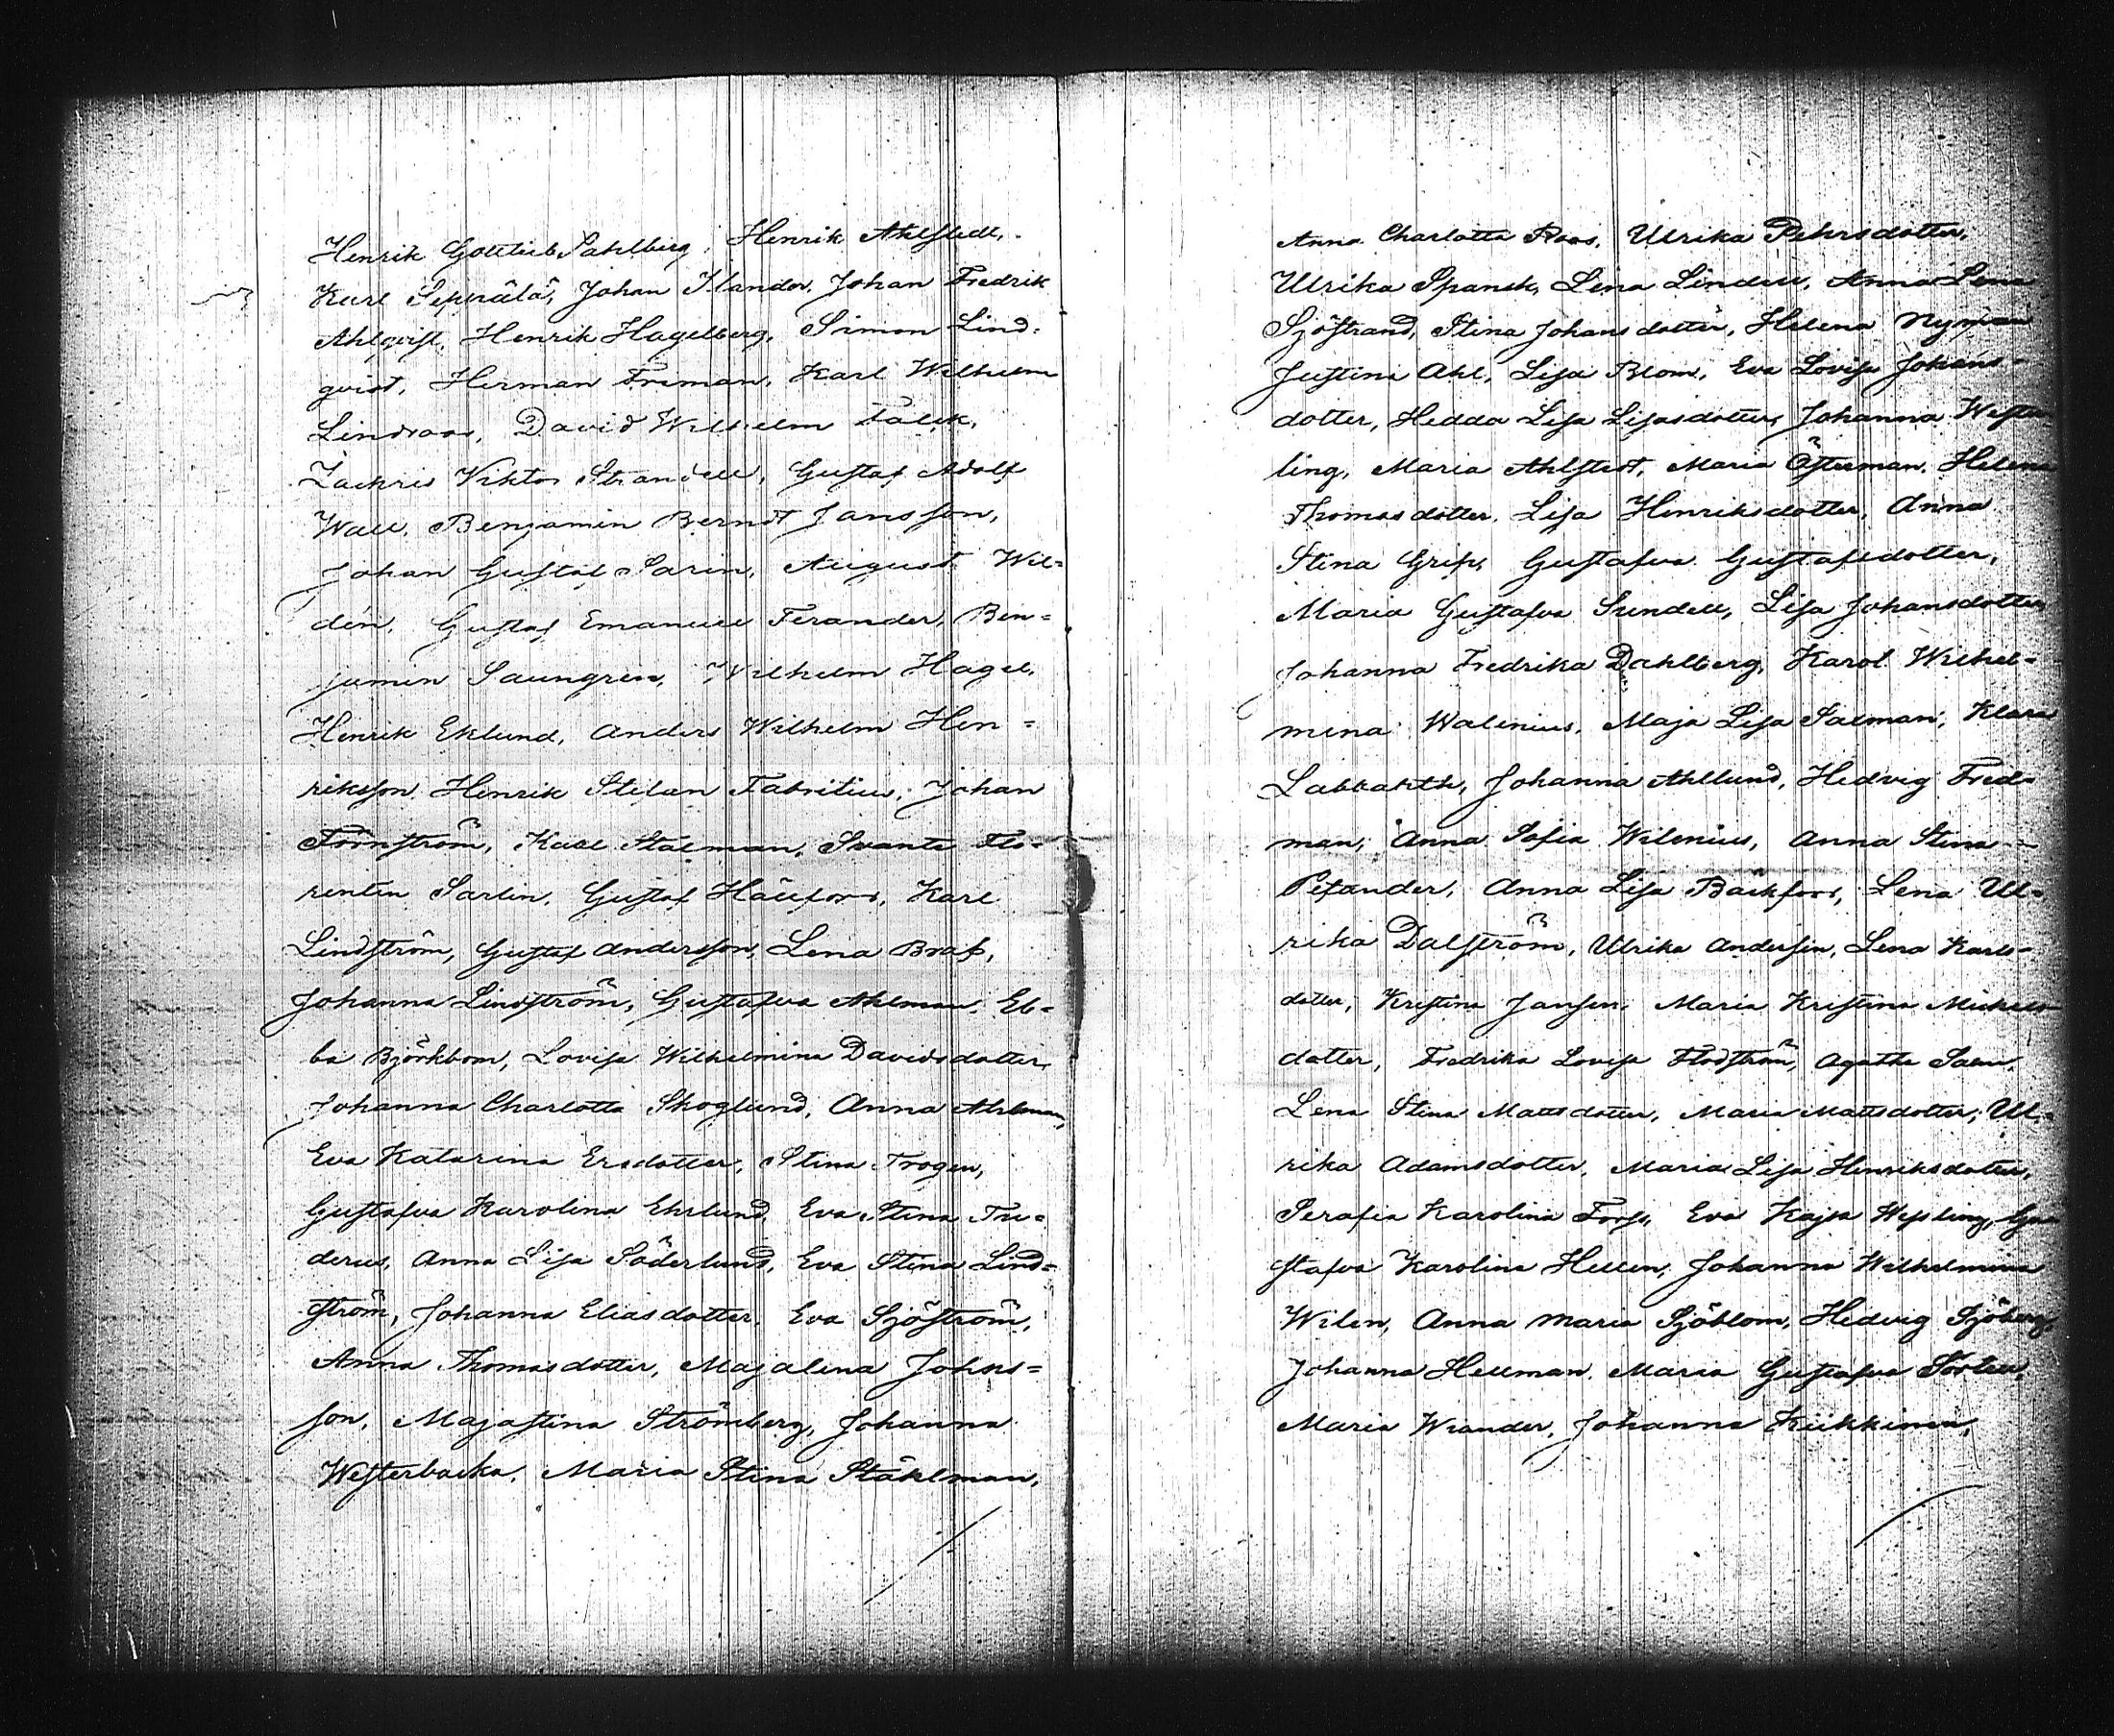 Henrik Gottlieb Sahlberg, Henrik Ahlstedt,
Karl Seppälä, Johan Ilander, Johan Fredrik
Ahlqvist, Henrik Hagelberg, Simon Lind-
qvist, Herman Friman, Karl Wilhelm
Lindroos, David Wilhelm Fälck,
Zachris Viktor Strandell, Gustaf Adolf
Wall, Benjamin Berndt Jansson,
Johan Gustaf Sarin, August Wil-
dén, Gustaf Emanuel Ferander, Ben-
jamin Saungren, Wilhelm Hagel,
Henrik Eklund, Anders Wilhelm Hen-
riksson, Henrik Stefan Fabritius, Johan
Törnström, Karl Stålman, Svante Flo-
rentin Sarlin, Gustaf Hällfors, Karl
Lindström, Gustaf Andersson, Lena Braf,
Johanna Lindström, Gustafva Ahlman, Eb-
ba Björkbom, Lovisa Wilhelmina Davidsdotter,
Johanna Charlotta Skoglund, Anna Ahlman,
Eva Katarina Ersdotter, Stina Trogen,
Gustafva Karolina Ehrlund, Eva Stina Tru-
derus, Anna Lisa Söderlund, Eva Stina Lind-
ström, Johanna Eliasdotter, Eva Sjöström,
Anna Thomasdotter, Majalena Johns-
son, Majastina Strömberg, Johanna
Westerbacka, Maria Stina Ståhlman,
Anna Charlotta Roos, Ulrika Pehrsdotter,
Ulrika Spansk, Lena Lindell, Anna Lena
Sjöstrand, Stina Johansdotter, Helena Nyman
Justina Ahl, Lisa Blom, Eva Lovisa Johans-
dotter, Hedda Lisa Lisasdotter, Johanna Wester
ling, Maria Ahlstedt, Maria Österman, Helena
Thomasdotter, Lisa Henriksdotter, Anna
Stina Grip, Gustafva Gustafsdotter,
Maria Gustafva Sundell, Lisa Johansdotter
Johanna Fredrika Dahlberg, Karol. Wilhel-
mina Walenius, Maja Lisa Salman, Klara
Labbarth, Johanna Ahllund, Hedvig Fred-
man, Anna Sofia Wilenius, Anna Stina
Petander, Anna Lisa Bäckfors, Lena Ul-
rika Dalström, Ulrika Andersin, Lena Karls-
dotter, Kristina Jansen, Maria Kristina Mickels
dotter, Fredrika Lovisa Flodström, Agatha Salm,
Lena Stina Mattsdotter, Maria Mattsdotter, Ul-
rika Adamsdotter, Maria Lisa Henriksdotter,
Serafia Karolina Forss, Eva Kajsa Wessling, Gu
stafva Karolina Hellen, Johanna Wilhelmina
Wilen, Anna Maria Sjöblom, Hedvig Sjöberg,
Johanna Hellman, Maria Gustafva
Maria Wrander, Johanna Kukkinen,